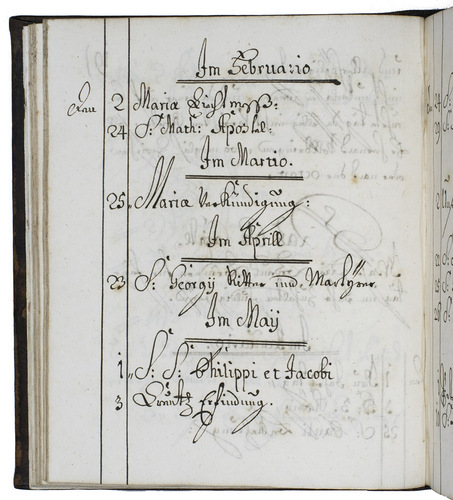 Im Februario
2 Mariæ Liechtmesß:
24 S: Math: Apostel:
Im Martio.
25. Mariæ Verkündigung:
Im Aprill
23 S: Georgÿ Ritter und Martÿrer
Im Maÿ
1. S: S: Philippi et Jacobi
3 Creutz Erfindung.